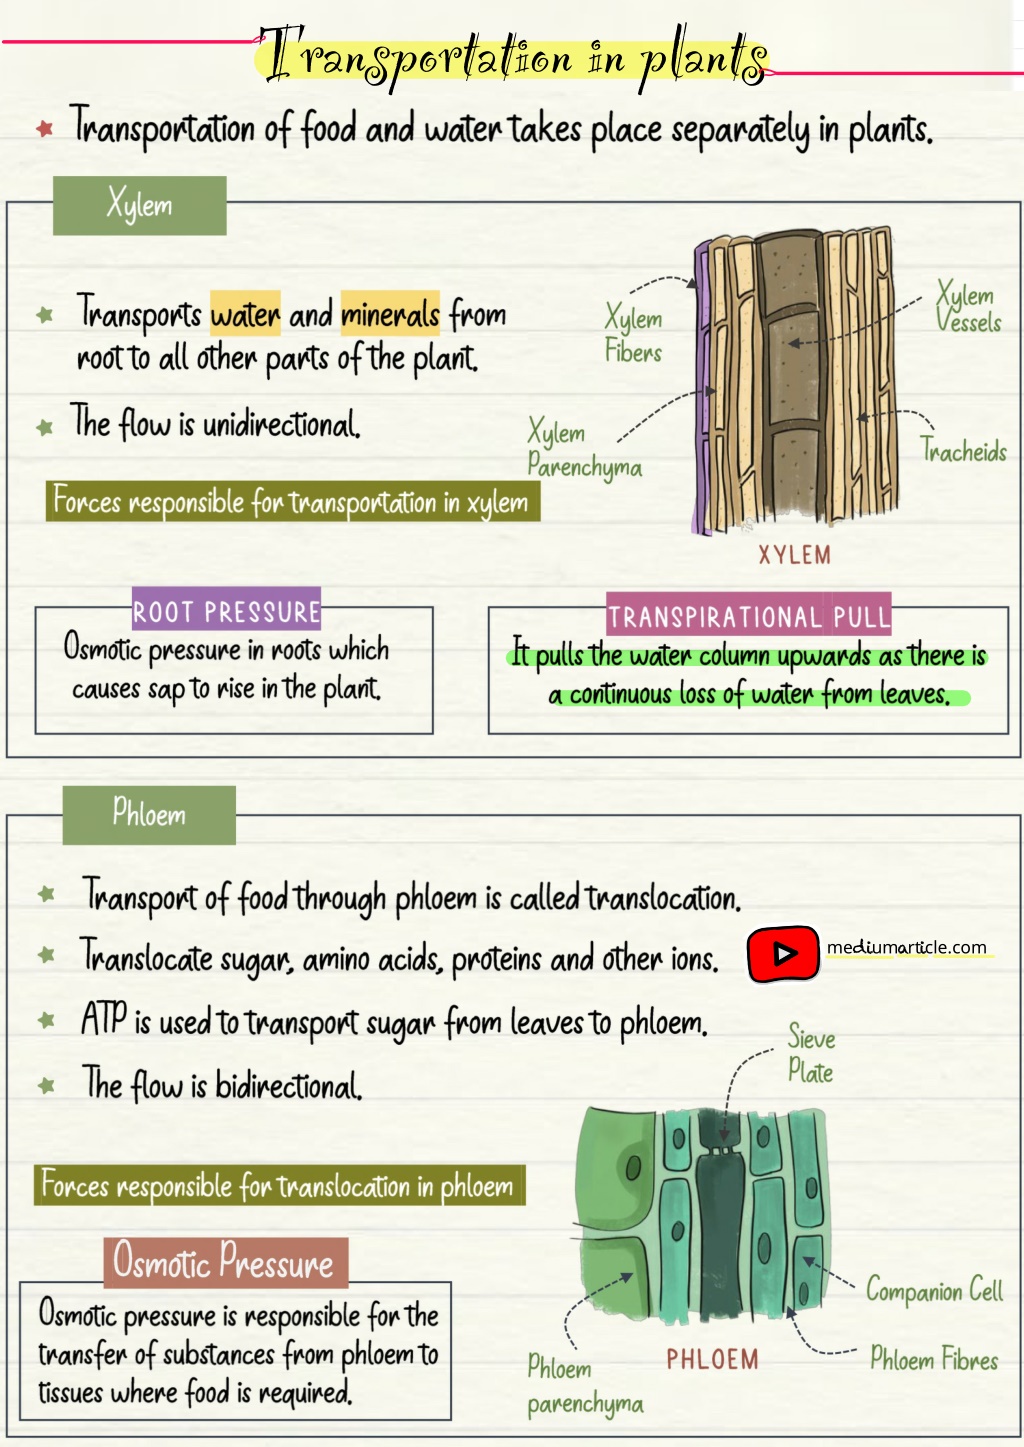 Transportation in plants
Transportation of food and water takes place separately in plants.
Xylem
Transports water and minerals from
root to all other parts of the plant.
The flow is unidirectional.
Xylem
Fibers
Xylem
Vessels
Xylem
Parenchyma
Tracheids
XYLEM
Forces responsible for transportation in xylem
ROOT PRESSURE
Osmotic pressure in roots which
causes sap to rise in the plant.
TRANSPIRATIONAL PULL
It pulls the water column upwards as there is
a continuous loss of water from leaves.
Phloem
Transport of food through phloem is called translocation.
Translocate sugar, amino acids, proteins and other ions.
mediumarticle.com
ATP is used to transport sugar from leaves to phloem.
The flow is bidirectional.
Sieve
Plate
Companion Cell
Phloem Fibres
Phloem
parenchyma
PHLOEM
Forces responsible for translocation in phloem
Osmotic Pressure
Osmotic pressure is responsible for the
transfer of substances from phloem to
tissues where food is required.